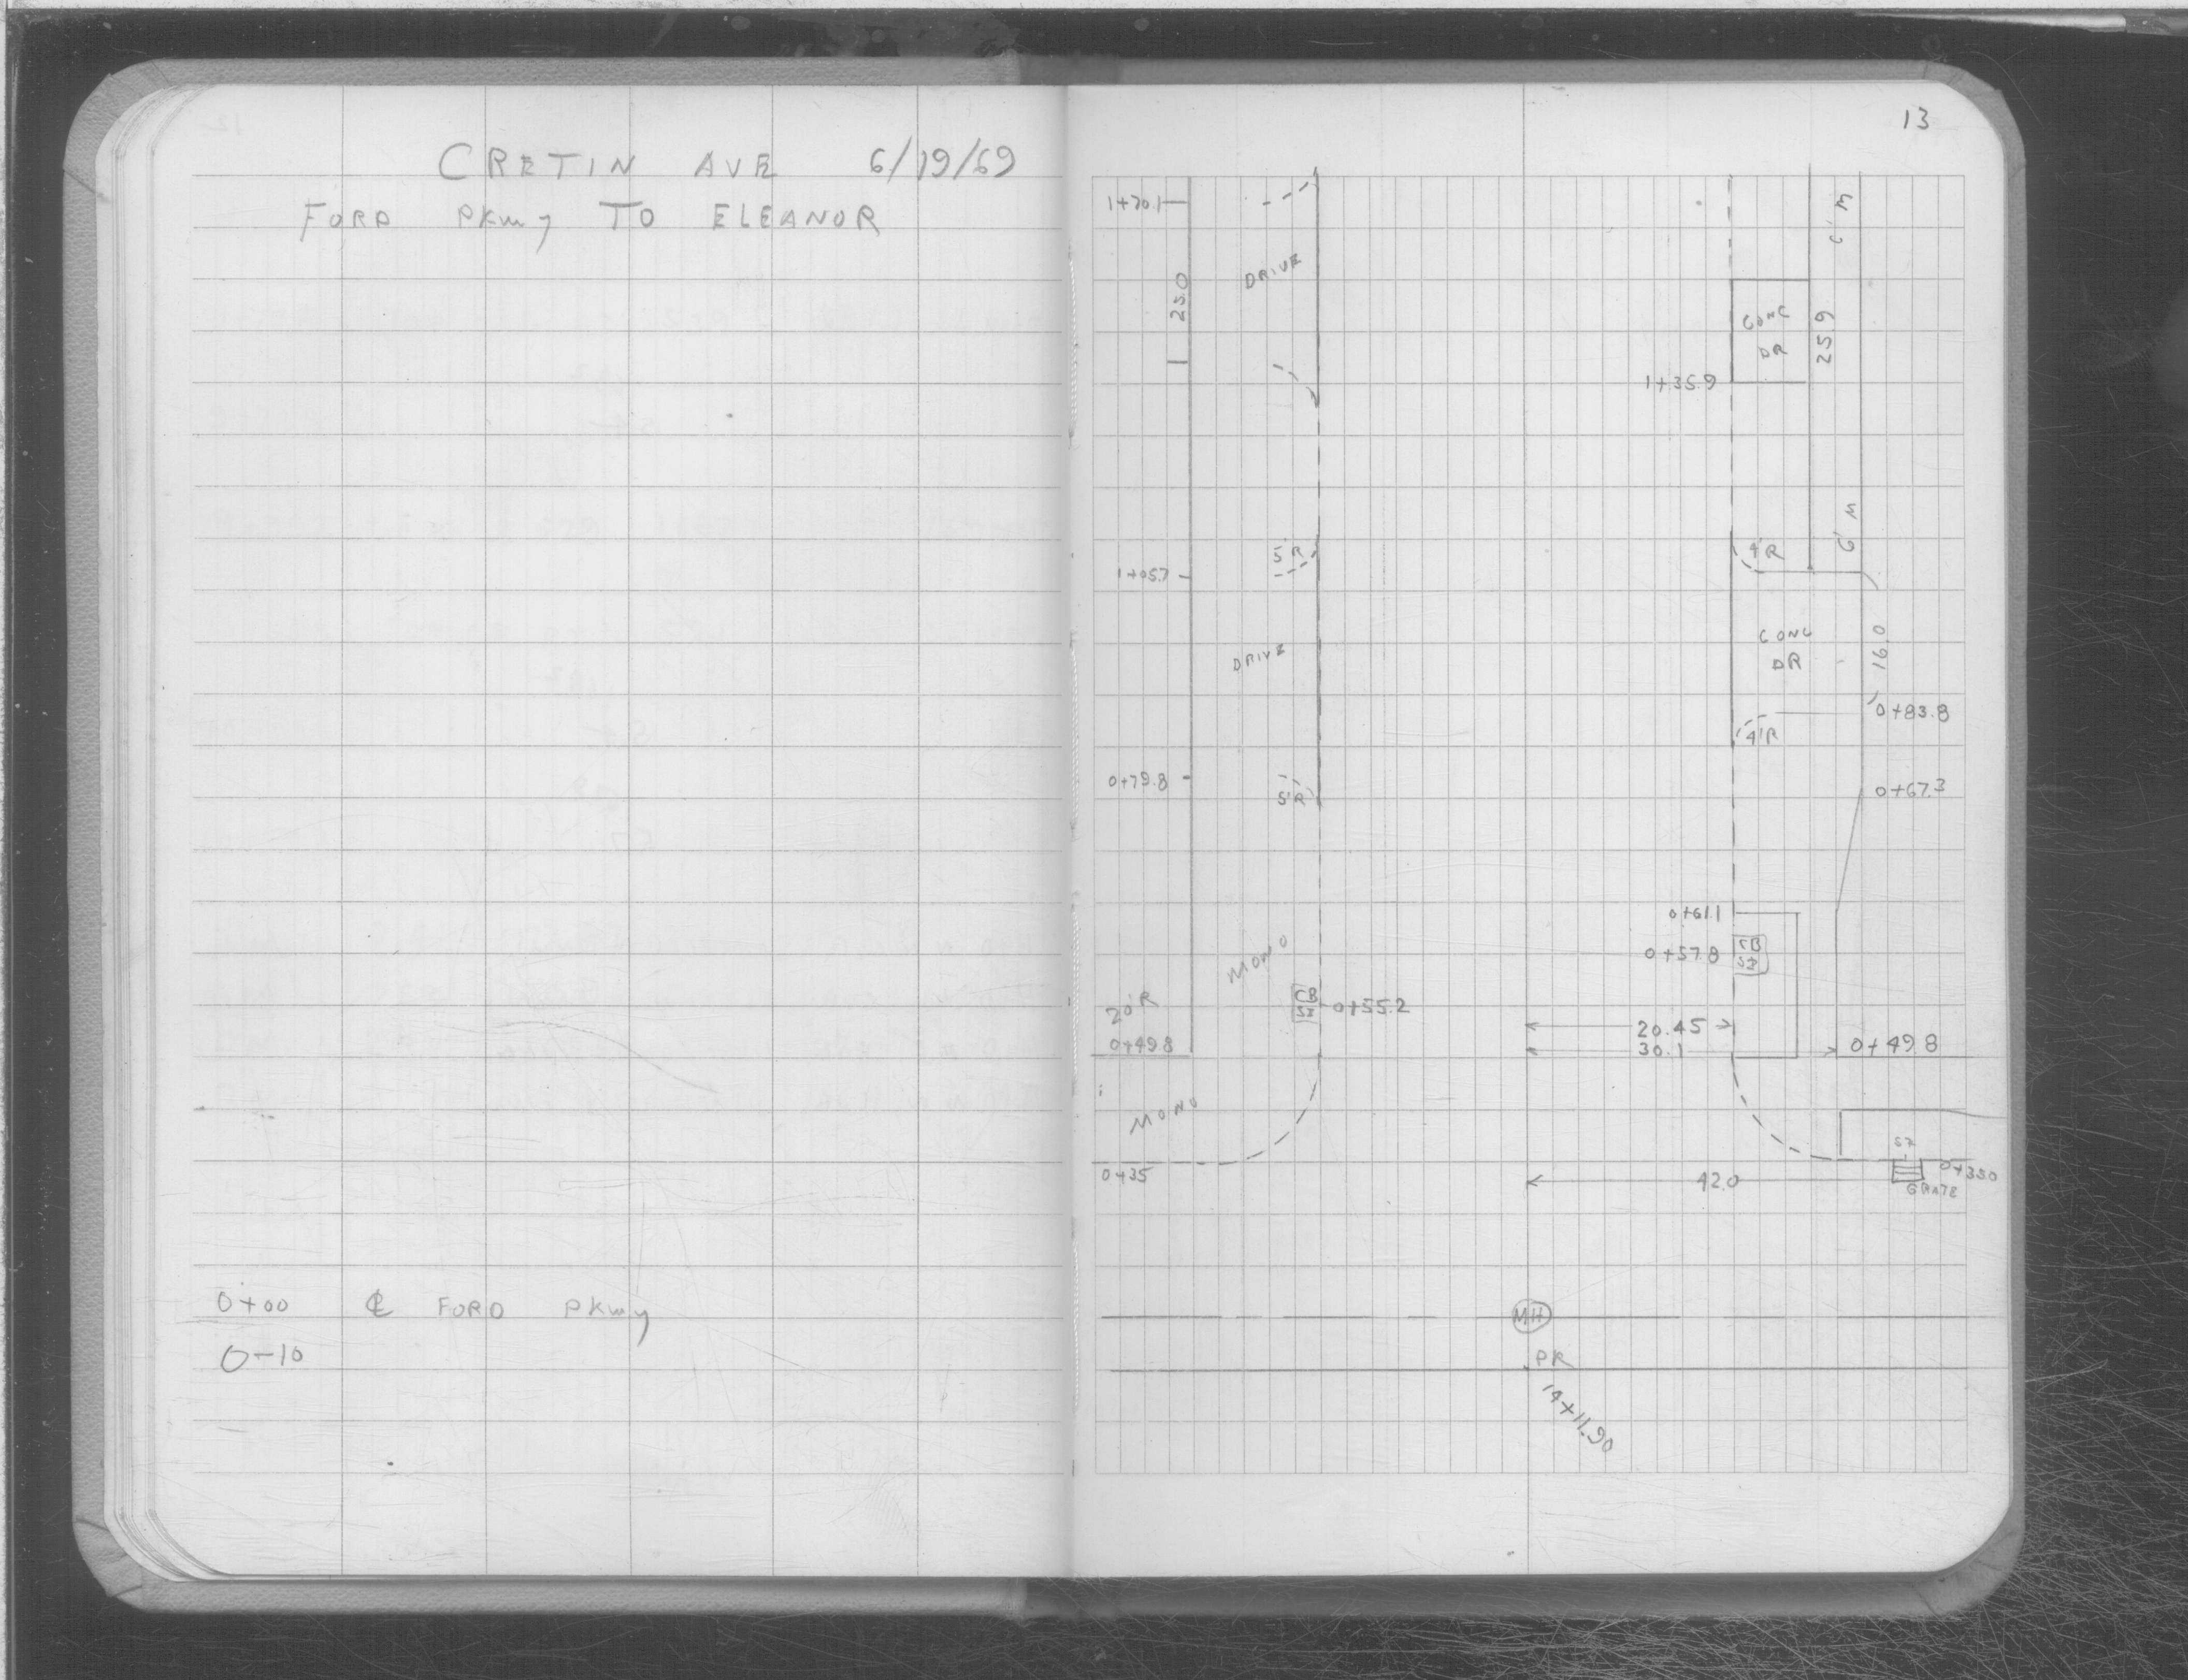 CRETIN AVE 6/19/69
FORD PKWY TO ELEANOR
0+00 ℄ FORD PKWY
0-10
13
1+70.1
6' M
DRIVE
25.0
CONC
DR
25.9
1+35.9
6' M
5'R
4'R
1+05.7
CONC
DR
16.0
DRIVE
0+83.8
4'R
0+79.8
5'R
0+67.3
0+61.1
MONO
CB
0+57.8
20'R
CB
0+55.2
20.45
30.1
0+49.8
0+49.8
MONO
0+35
42.0
GRATE
0+35.0
MH
PK
14+11.90